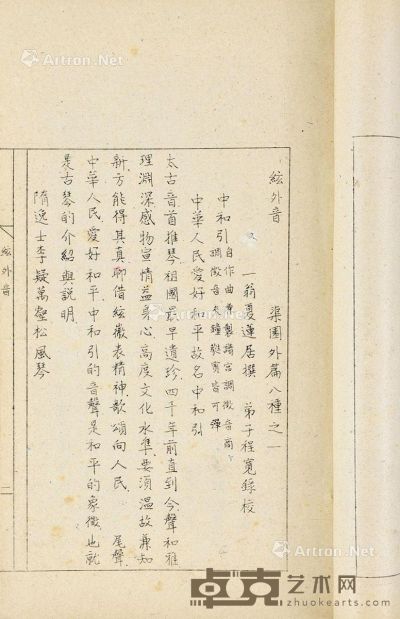 絃外音
渠園外篇八種之一
一翁夏蓮居撰 弟子程寬錄校
中和引
自作曲兼製譜宮調徵音商
調徵音大鐘蕤賓皆可彈
中華人民愛好和平故名中和引
太古音首推琴祖國最早遺珍四千年前直到今聲和雅
理淵深感物宣情益身心高度文化水準要須溫故兼知
新方能得其真聊借絃徽表精神歌頌向人民 尾聲
中華人民愛好和平中和引的音聲是和平的象徵也就
是古琴的介紹與說明
隋逸士李疑萬壑松風琴
絃外音
二
Artron.Net
Artron.Net
Artron.Net
Artron.Net
卓克艺术网
zhuokearts.com